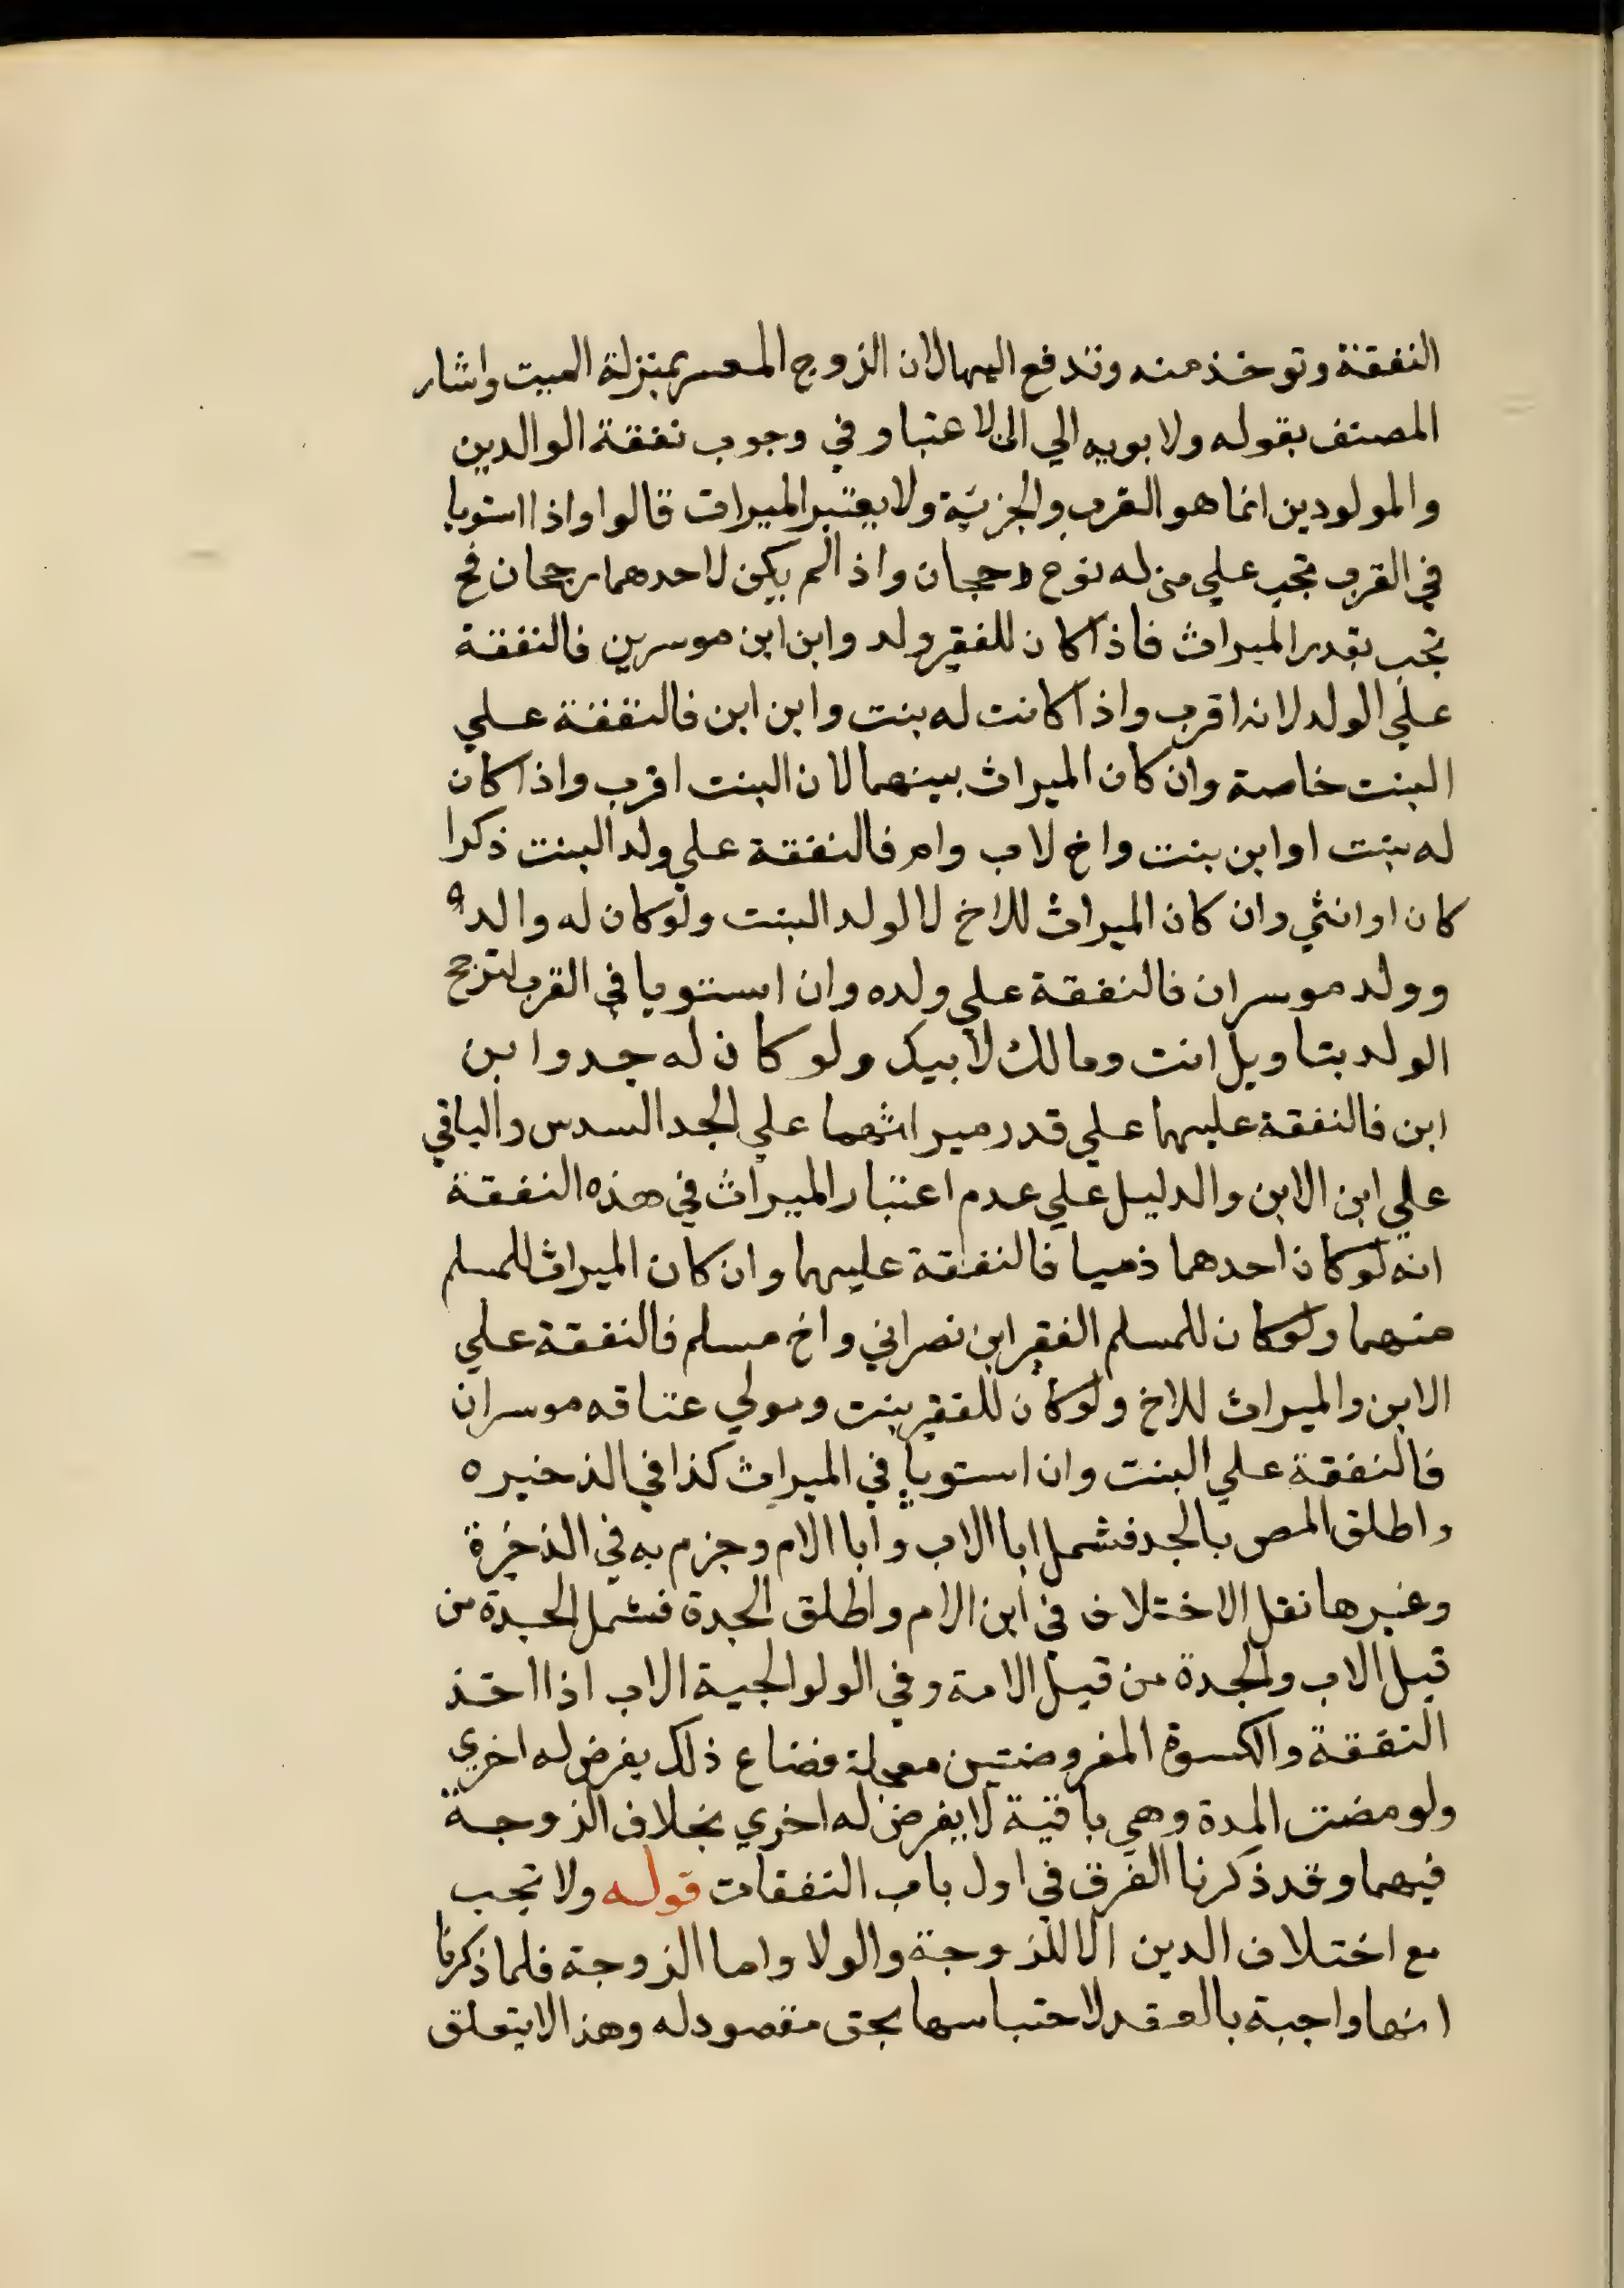 النفقة وتوخذ منه وتدفع اليها لان الزوج المعسر بمنزلة الميت واشار
المصنف بقوله ولابويه الي ان الاعتبار في وجوب نفقة الوالدين
والمولودين انما هو القرب والجزئية ولا يعتبر الميراث قالوا واذا استويا
في القرب تجب علي من له نوع رجحان واذا لم يكن لاحدهما رجحان فح
تجب بقدر الميراث فاذا كان للفقير ولد وابن ابن موسرين فالنفقة
علي الولد لانه اقرب واذا كانت له بنت وابن ابن فالنفقة علي
البنت خاصة وان كان الميراث بينهما لان البنت اقرب واذا كان
له بنت او ابن بنت واخ لاب وام فالنفقة علي ولد البنت ذكرا
كان او انثي وان كان الميراث للاخ لا لولد البنت ولو كان له والد
وولد موسران فالنفقة علي ولده وان استويا في القرب لترجح
الولد بتاويل انت ومالك لابيك ولو كان له جد وابن
ابن فالنفقة عليهما علي قدر ميراثهما علي الجد السدس والباقي
علي ابن الابن والدليل علي عدم اعتبار الميراث في هذه النفقة
انه لو كان احدهما ذميا فالنفقة عليهما وان كان الميراث للمسلم
منهما ولو كان للمسلم الفقير ابن نصراني واخ مسلم فالنفقة علي
الابن والميراث للاخ ولو كان للفقير بنت ومولي عتاقه موسران
فالنفقة علي البنت وان استويا في الميراث كذا في الذخيره
واطلق المص بالجد فشمل ابا الاب وابا الام وجزم به في الذخيرة
وغيرها نقل الاختلاف في ابن الام واطلق الجدة فشمل الجدة من
قبل الاب والجدة من قبل الامة وفي الولوالجية الاب اذا اخذ
النفقة والكسوة المفروضتين معجلة فضاع ذلك يفرض له اخري
ولو مضت المدة وهي باقية لا يفرض له اخري بخلاف الزوجة
فيهما وقد ذكرنا الفرق في اول باب النفقات قوله ولا تجب
مع اختلاف الدين الا للزوجة والولا واما الزوجة فلما ذكرنا
انها واجبة بالعقد لاحتباسها بحق مقصود له وهذا لا يتعلق